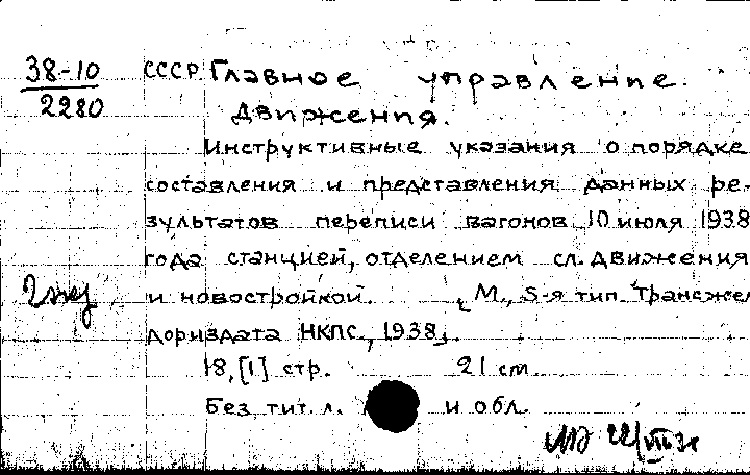 38-10
2280
СССР. Главное управление
движения.
Инструктивные указания о порядке
составления и представления данных ре-
зультатов переписи вагонов 10 июля 1938
года станцией, отделением сл. движения
и новостройкой. [М., 5-я тип. Трансжел-
дориздата НКПС, 1938].
18, [1] стр. 21 см.
Без тит. л. и обл.